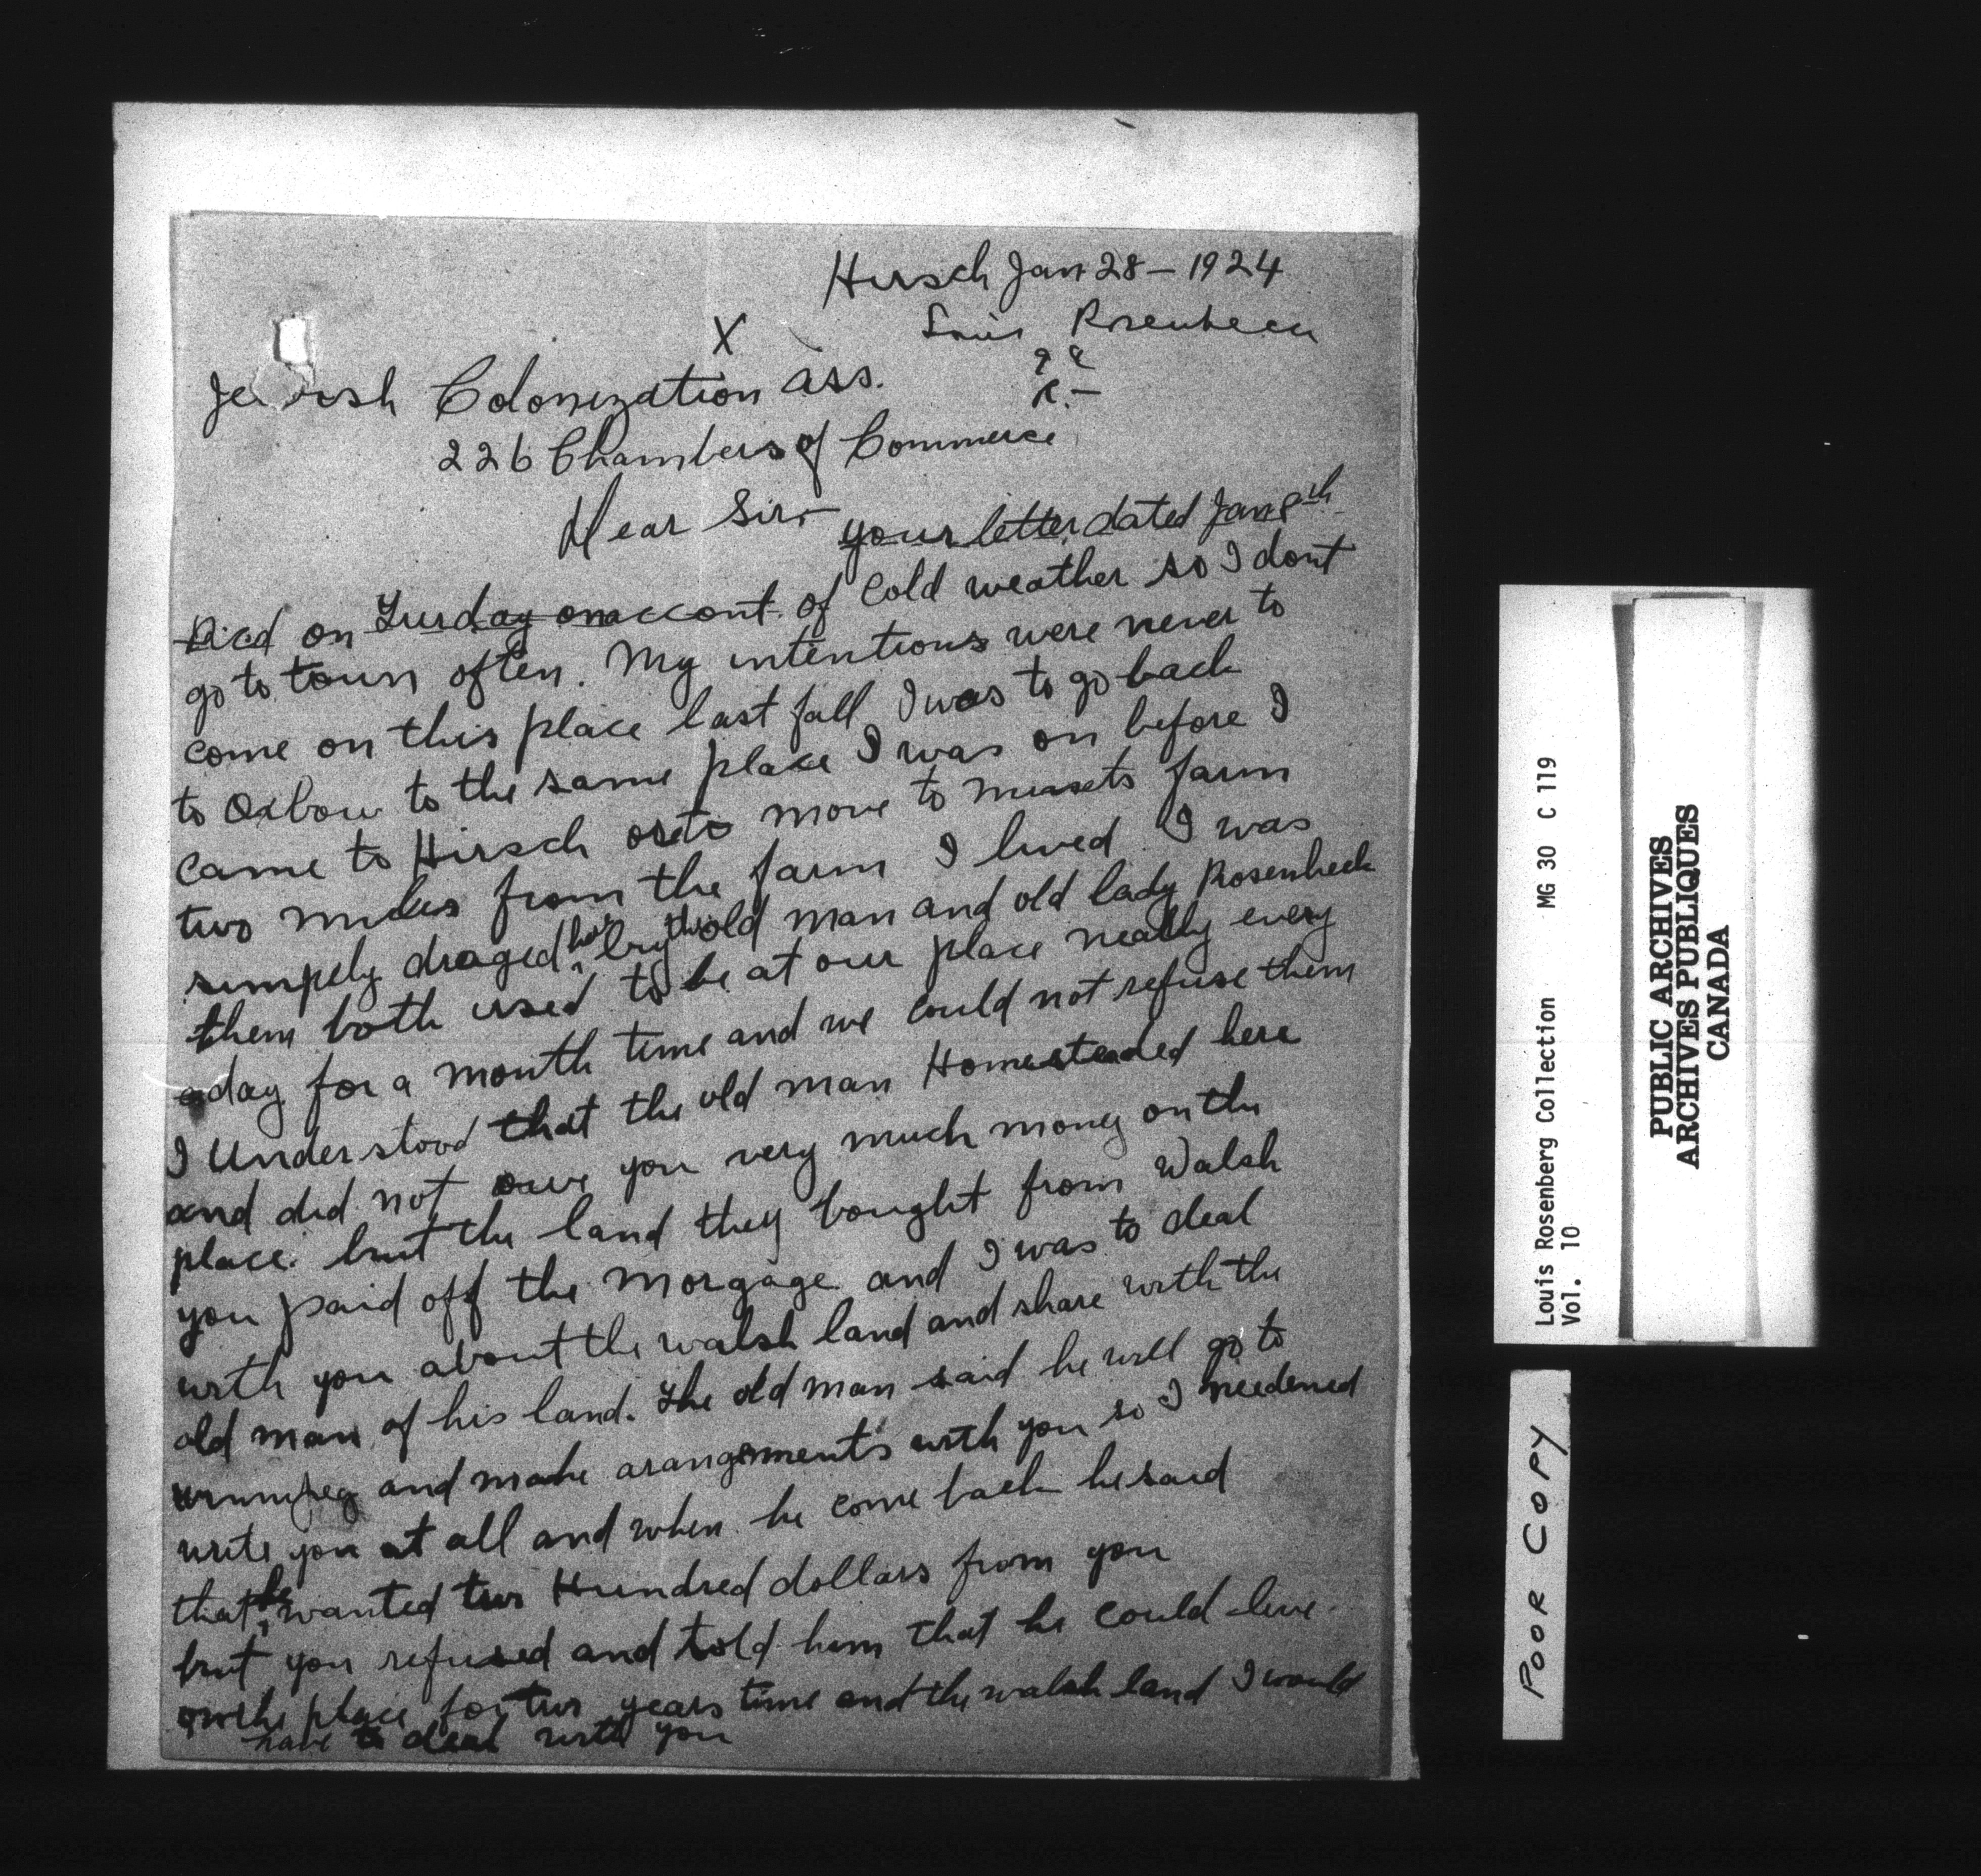 Hirsch Jan 28 - 1924
Rosenbeck
X
Jewish Colonization Ass.
226 Chambers of Commerce
Dear Sir:-
your letter dated Jan 8th
Ricd on Tusday on account of cold weather so I dont
go to town often. My intentions were never to
come on this place last fall I was to go back
to Oxbow to the same place I was on before I
came to Hirsch or to move to farm
two miles from the farm I lived I was
simpely draged here by the old man and old lady Rosenbeck
them both used to be at our place neally every
day for a month time and we could not refuse them
I Understood that the old man Homesteaded here
and did not owe you very much money on the
place. but the land they bought from Walsh
you paid off the Morgage and I was to deal
with you about the walsh land and share with the
old man of his land. The old man said he will go to
winnipeg and make arangements with you so I needened
write you at all and when he come back he said
that he wanted two Hundred dollars from you
but you refused and told him that he could live
on the place for two years time and the walsh land I would
have to deal with you
Louis Rosenberg Collection MG 30 C 119
Vol. 10
PUBLIC ARCHIVES
ARCHIVES PUBLIQUES
CANADA
POOR COPY